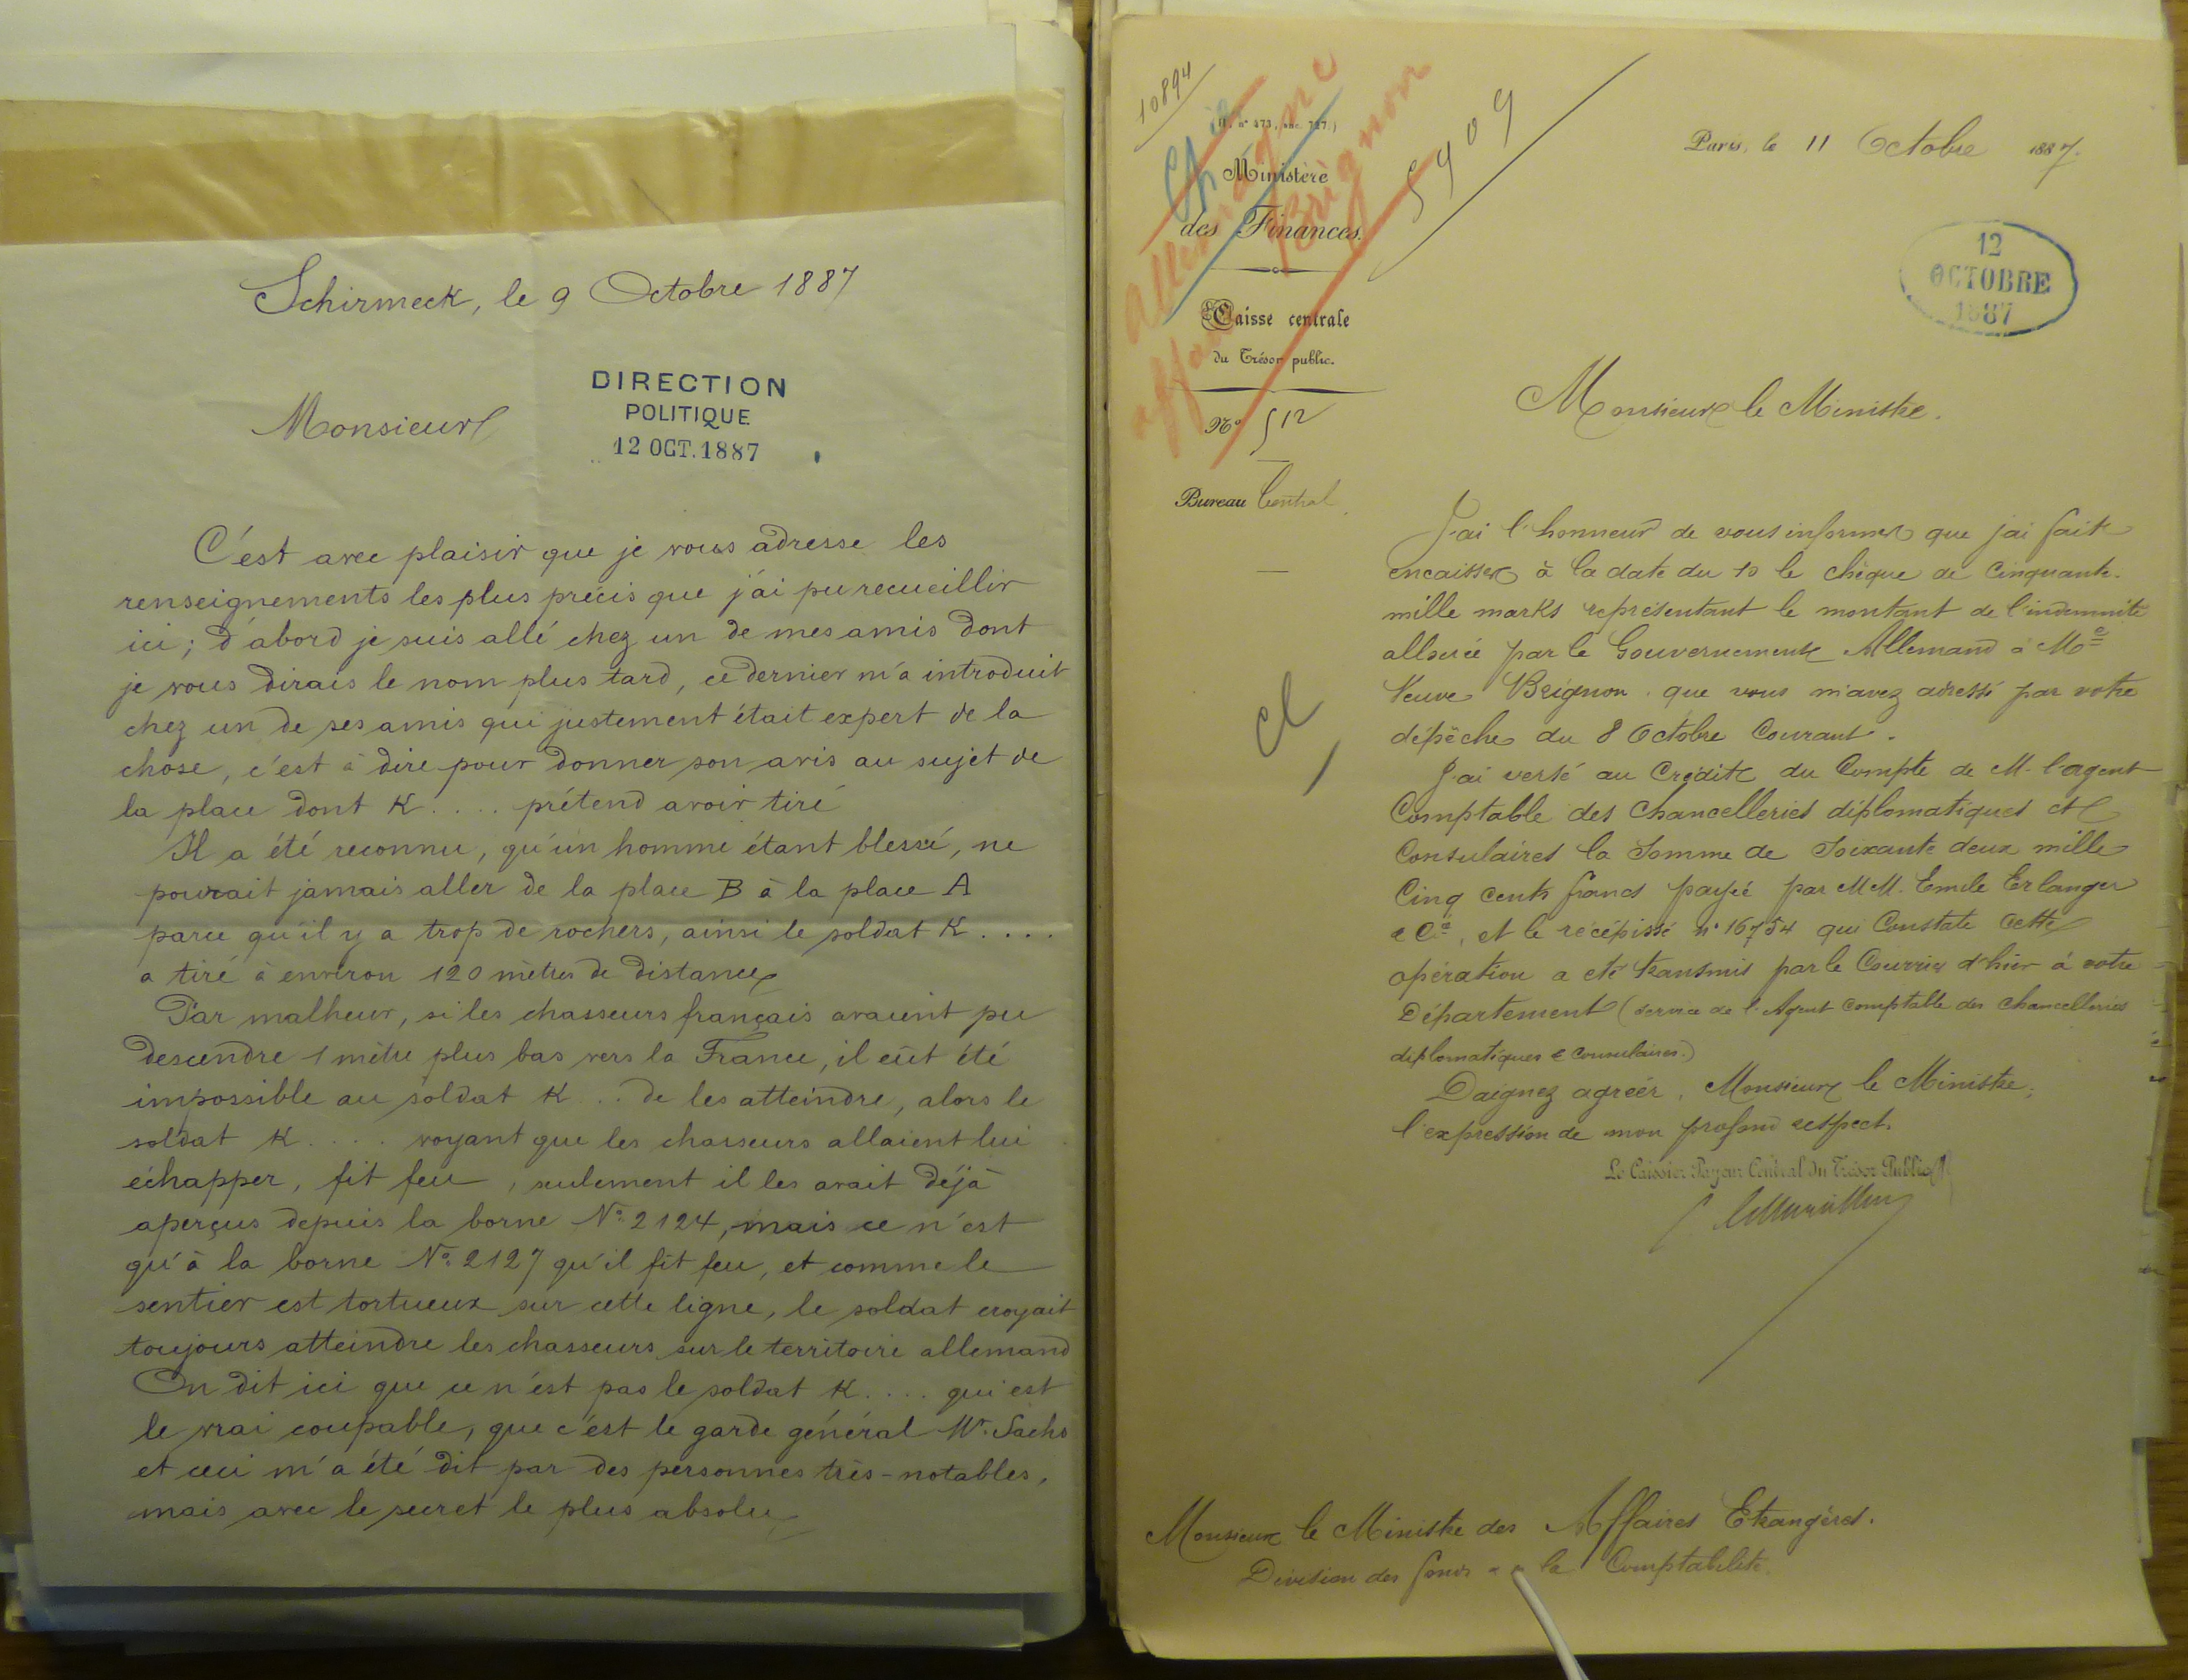 Schirmeck, le 9 Octobre 1887
DIRECTION
POLITIQUE
12 OCT. 1887
Monsieur
C'est avec plaisir que je vous adresse les
renseignements les plus précis que j'ai pu recueillir
ici ; d'abord je suis allé chez un de mes amis dont
je vous dirais le nom plus tard, ce dernier m'a introduit
chez un de ses amis qui justement était expert de la
chose, c'est à dire pour donner son avis au sujet de
la place dont K . . . . prétend avoir tiré
Il a été reconnu, qu'un homme étant blessé, ne
pouvait jamais aller de la place B à la place A
parce qu'il y a trop de rochers, ainsi le soldat K . . . .
a tiré à environ 120 mètres de distance
Par malheur, si les chasseurs français avaient pu
descendre 1 mètre plus bas vers la France, il eût été
impossible au soldat K . . de les atteindre, alors le
soldat K . . . . voyant que les chasseurs allaient lui
échapper, fit feu , seulement il les avait déjà
aperçus depuis la borne No. 2124, mais ce n'est
qu'à la borne No. 2127 qu'il fit feu, et comme le
sentier est tortueux sur cette ligne, le soldat croyait
toujours atteindre les chasseurs sur le territoire allemand
On dit ici que ce n'est pas le soldat K . . . . qui est
le vrai coupable, que c'est le garde général Mr. Sachs
et ceci m'a été dit par des personnes très-notables,
mais avec le secret le plus absolu
10894
Allemagne
affaire Brignon
5909
Ministère
des Finances.
Caisse centrale
du Trésor public.
No 512
Bureau Central
Paris, le 11 Octobre 1887.
12
OCTOBRE
1887
Monsieur le Ministre.
J'ai l'honneur de vous informer que j'ai fait
encaisser à la date du 10 le chèque de Cinquante-
mille marks représentant le montant de l'indemnité
allouée par le Gouvernement Allemand à Me
Veuve Brignon que vous m'avez adressé par votre
dépêche du 8 Octobre Courant.
J'ai versé au Crédit du Compte de M. l'agent
Comptable des Chancelleries diplomatiques et
Consulaires la Somme de Soixante deux mille
Cinq Cents francs payée par MM. Emile Erlanger
& Cie, et le récépissé no 16754 qui Constate cette
opération a été transmis par le Courrier d'hier à votre
Département (service de l'Agent Comptable des Chancelleries
diplomatiques & Consulaires.)
Daignez agréer, Monsieur le Ministre,
l'expression de mon profond respect.
Le Caissier Payeur Central du Trésor Public
Monsieur le Ministre des Affaires Etrangères.
Division des fonds & de la Comptabilité.